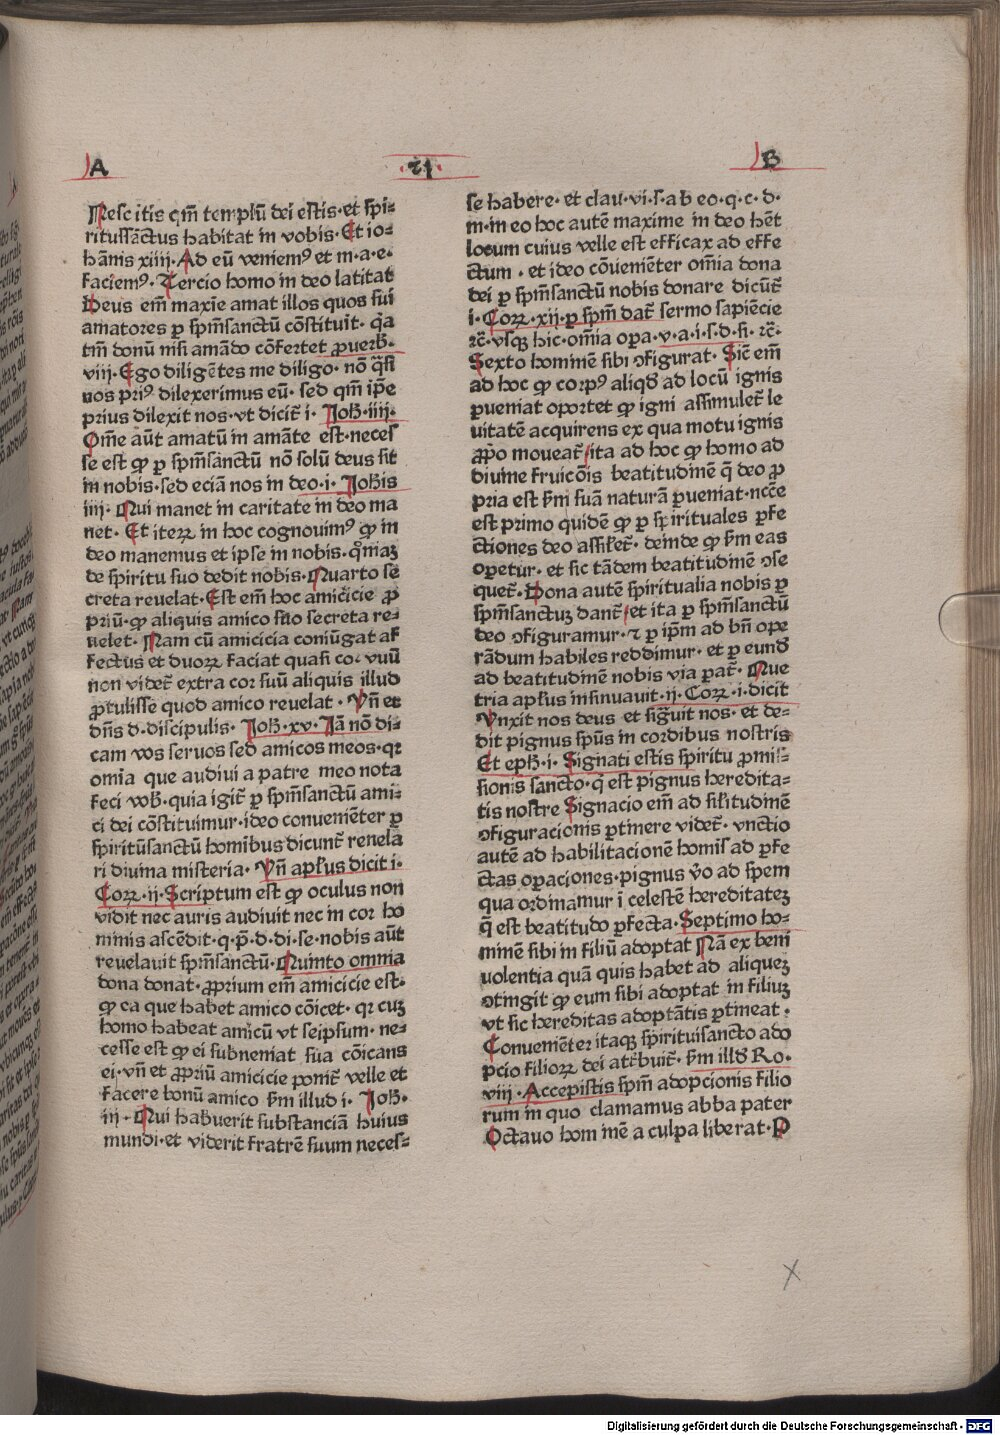 A
·21·
B
Nescitis qm̄ templū dei estis·et spi=
ritussānctus habitat in vobis·Et io-
hānis xiiij·Ad eū veniemꝰ et m·a·e·
faciemꝰ·Tercio homo in deo latitat
Deus em̄ maxīe amat illos quos sui
amatores ꝑ spm̄sanctū cōstituit·qͥa
tm̄ donū nisi amādo cōfertet ꝓuerb̄·
viij·Ego diligētes me diligo·nō qͣsi
nos priꝰ dilexerimus eū·sed qm̄ ip̄e
prius dilexit nos·vt dicit̄ i· Joh̄·iiij·
Om̄e aūt amatū in amāte est·neces
se est ꝙ ꝑ spm̄sanctū nō solū deus sit
in nobis·sed eciā nos in deo·i·Joh̄is
iiij·Qui manet in caritate in deo ma
net·Et iteꝝ in hoc cognouimꝰ ꝙ in
deo manemus et ipse in nobis·qͦniaꝫ
de spiritu suo dedit nobis·Quarto se
creta reuelat·Est em̄ hoc amicicie ꝓ
priū·ꝙ aliquis amico suo secreta re-
uelet·Nam cū amicicia coniūgat af
fectus et duoꝝ faciat quasi cor vnū
non videt̄ extra cor suū aliquis illud
ꝓtulisse quod amico reuelat·Vn̄ et
dn̄s d·discipulis· Joh̄·xv·Jā nō di-
cam vos seruos sed amicos meos·qꝛ
omia que audiui a patre meo nota
feci vob̄·quia igit̄ ꝑ spm̄sanctū ami=
ci dei cōstituimur·ideo conueniēter ꝑ
spiritūsanctū homibus dicunt̄ reuela
ri diuina misteria·Vn̄ apl̄us dicit i·
Coꝝ·ij·Scriptum est ꝙ oculus non
vidit nec auris audiuit nec in cor ho
minis ascēdit·q·p̄·d·di·se·nobis aūt
reuelauit spm̄sanctū·Quinto omnia
dona donat·ꝓprium em̄ amicicie est·
ꝙ ea que habet amico cōicet·qꝛ cuꝫ
homo habeat amicū vt seipsum·ne-
cesse est ꝙ ei subueniat sua cōicans
ei·vn̄ et ꝓpriū amicicie ponit̄ velle et
facere bonū amico sm̄ illud i· Joh̄·
iij·Qui habuerit substanciā huius
mundi·et viderit fratrē suum neces=
se habere·et clau·vi·s·a b eo·q·c·d·
m·in eo hoc autē maxime in deo hēt
locum cuius velle est efficax ad effe
ctum·et ideo cōueniēter om̄ia dona
dei ꝑ spm̄sanctū nobis donare dicūt̄
i·Coꝝ·xij·ꝑ spm̄ dat̄ sermo sapiēcie
ꝛc̄·vsqꝫ hic·om̄ia oꝑa·v·a·i·s·d·fi·ꝛc̄·
Sexto hominē sibi ꝯfigurat·Sic̄ em̄
ad hoc ꝙ corpꝰ aliqd̄ ad locū ignis
ꝑueniat oportet ꝙ igni assimulet̄ le
uitatē acquirens ex qua motu ignis
ꝓpͥo moueat̄ ita ad hoc ꝙ homo ad
diuine fruicōis beatitudinē q̄ deo ꝓ
pria est sm̄ suā naturā ꝑueniat·nccē
est primo quidē ꝙ ꝑ spirituales ꝑfe
ctiones deo assil̄et̄·deinde ꝙ sm̄ eas
oꝑetur·et sic tādem beatitudinē ꝯse
quet̄·Dona autē spiritualia nobis ꝑ
spm̄sanctuꝫ dant̄ et ita ꝑ spm̄sanctū
deo ꝯfiguramur·⁊ ꝑ ip̄m ad bn̄ ope
rādum habiles reddimur·et ꝑ eund
ad beatitudinē nobis via ꝑat̄·Que
tria apl̄us insinuauit·ij·Coꝝ·i·dicit
Vnxit nos deus et sig̅uit nos·et de=
dit pignus spūs in cordibus nostris
Et eph̄·i·Signati estis spiritu ꝓmis=
sionis sancto·q̇ est pignus heredita=
tis nostre Signacio em̄ ad sil̄itudinē
ꝯfiguracionis ꝑtinere videt̄·vnctio
autē ad habilitacionē homīs ad ꝑfe
ctas oꝑaciones·pignus v̊o ad spem
qua ordinamur i celestē hereditateꝫ
q̄ est beatitudo ꝑfecta·Septimo ho=
minē sibi in filiū adoptat Nā ex beni
uolentia quā quis habet ad aliqueꝫ
ꝯtingit ꝙ eum sibi adoptat in filiuꝫ
vt sic hereditas adoptātis ꝑtineat·
Conueniēter itaqꝫ spirituisancto ado
pcio filioꝝ dei attͥbuit̄·sm̄ illd̄ Ro·
viij·Accepistis spm̄ adopcionis filio
rum in quo clamamus abba pater
Octauo hominē a culpa liberat·P
Digitalisierung gefördert durch die Deutsche Forschungsgemeinschaft - DFG